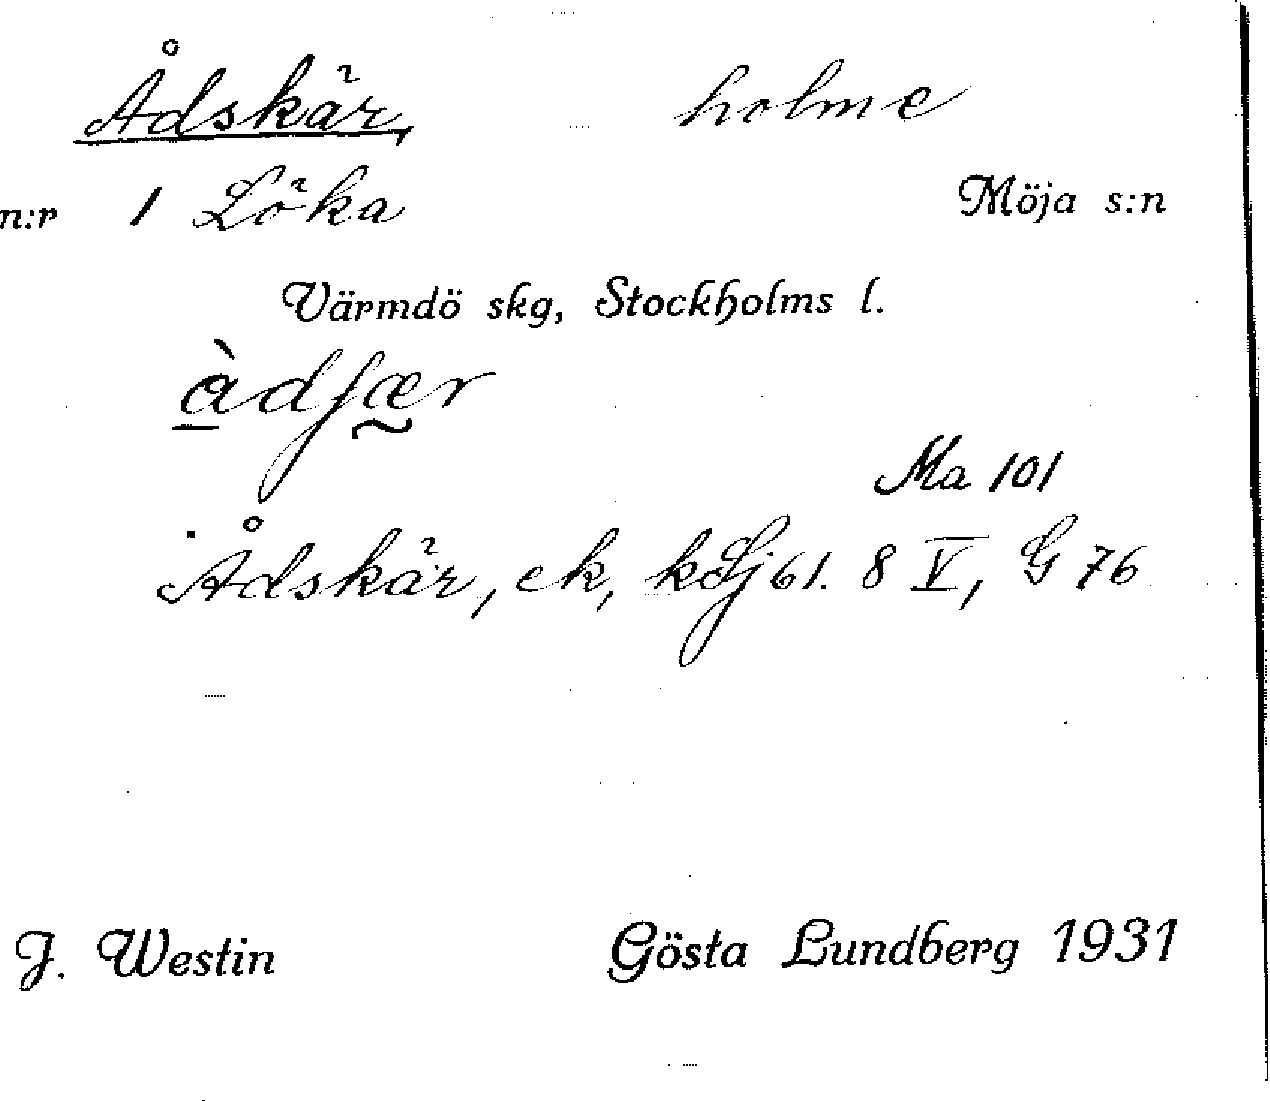 Ådskär, holme
n:r 1 Löka Möja s:n
Värmdö skg, Stockholms l.
àdſær
Ma 101
Ådskär, ek, k Lj 61. 8 V, G 76
J. Westin Gösta Lundberg 1931